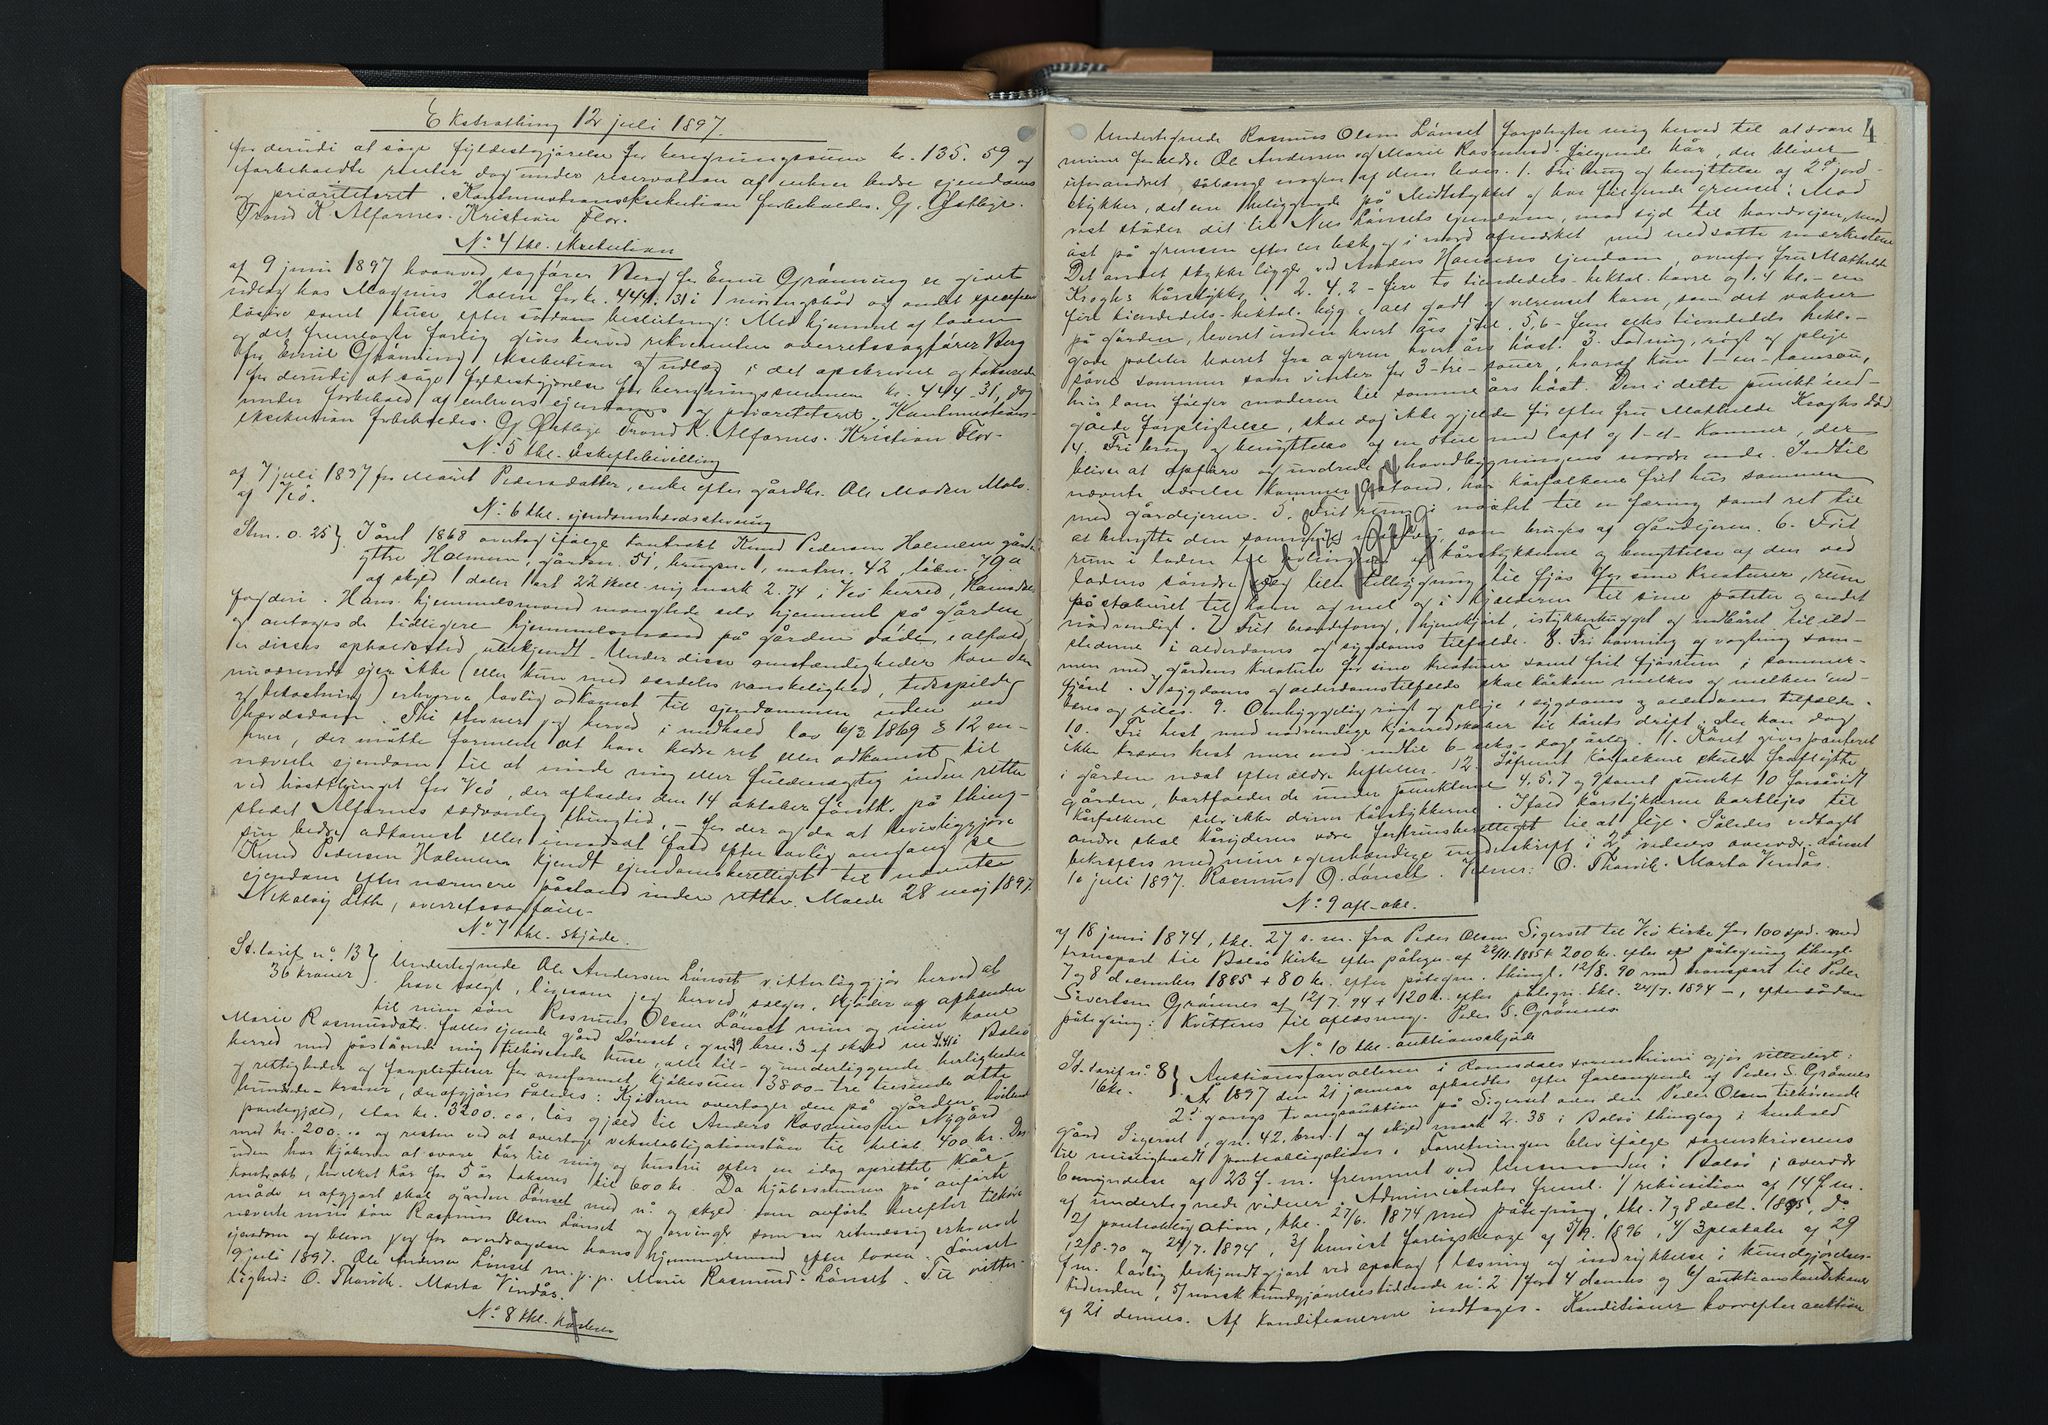 Ekstrathing 12 juli 1897.
for derudi at søge fyldestgjørelse for beregningssum kr. 135.59 og
forbeholdte renter dog under reservation af enhver bedre ejendoms
og prioritetsret. Kontinuationseksekution forbeholdes. G. Østbye.
Trond K. Alfarnes. Kristian Flor.
No 4 thl. eksekution
af 9 juni 1897 hvorved sagfører Berg for Emil Grønning er givet
udlæg hos Magnus Holm for kr. 444.31 i 1 næringsbåd og andet specificeret
løsøre samt huse efter sådan beslutning: Med hjemmel af loven
og det fremlagte forlig gives herved rekvirenten overretssagfører Berg
for Emil Grønning eksekution og udlæg i det opskrevne og takserede
for derudi at søge fyldestgjørelse for beregningssummen kr. 444.31, dog
under forbehold af enhvers ejendoms og prioritetsret. Kontinuations-
eksekution forbeholdes. G. Østbye Trond K. Alfarnes. Kristian Flor.
No 5 thl. uskiftebevilling
af 7 juli 1897 for Marit Pedersdatter, enke efter gårdbr. Ole Madsen Malo
af Veø.
No 6 thl. ejendomshævdsstevning
Stm. 0.25 } I året 1868 overtog ifølge kontrakt Knud Pedersen Holmem gården
ytre Holmem, gårdsn. 51, brugsn. 1, matrn. 42, løbn. 79a
af skyld 1 daler 1 ort 22 skill. ny mark 2.74 i Veø herred, Romsdals
fogderi. Hans hjemmelsmand manglede selv hjemmel på gården
og antages de tidligere hjemmelsmænd på gården døde, i alfald
er disses opholdssted ubekjendt. Under disse omstændigheder kan den
nuværende ejer ikke (eller kun med særdeles vanskelighed, tidsspilde
og bekostning) erhverve lovlig adkomst til ejendommen uden ved
hævdsdom. Thi stevner jeg herved i medhold lov 6/3 1869 § 12 en-
hver, der måtte formene at have bedre ret eller adkomst til
nævnte ejendom, til at møde mig eller fuldmægtig inden rette
ved høstthinget for Veø, der afholdes den 14 oktober førstk. på thing-
stedet Alfarnes sædvanlig thingtid, – for der og da at bevisliggjøre
sin bedre adkomst eller i modsat fald efter lovlig omgang se
Knud Pedersen Holmem kjendt ejendomsberettiget til nævnte
ejendom efter nærmere påstand inden retten. Molde 28 maj 1897.
Nikolaij Leth, overretssagfører.
No 7 thl. skjøde.
St. tarif no 13 } Undertegnede Ole Andersen Lønset vitterliggjør herved at
36 kroner } have solgt, ligesom jeg herved sælger, skjøder og afhænder
til min søn Rasmus Olsen Lønset min og min kone
Marie Rasmusdatt. fælles ejende gård Lønset, gn. 39 brn. 3 af skyld m. i Bolsø
herred med påstående mig tilhørende huse, alle til- og underliggende herligheder
og rettigheder og forpligtelser for omforenet kjøbesum 3800 – tre tusinde otte
hundrede – kroner, der afgjøres således: Kjøberen overtager den på gården hvilende
pantegjæld, stor kr. 3200.00, løs gjæld til Anders Rasmussen Nygård
med kr. 200.00 og resten ved at overtage vekselobligationslån til beløb 400 kr. Des-
uden har kjøberen at svare kår til mig og hustru efter en idag oprettet kår-
kontrakt, hvilket kår for 5 år takseres til 600 kr. Da kjøbesummen på anførte
måde er afgjort skal gården Lønset med no og skyld som anført herefter tilhøre
nævnte min søn Rasmus Olsen Lønset og arvinger som en retmæssig erhvervet
ejendom og bliver jeg for overdragelsen hans hjemmelsmand efter loven. Lønset
9 juli 1897. Ole Andersen Lønset m. p. p. Marie Rasmusd. Lønset. Til vitter-
lighed: O. Thorvik. Marta Vindås.
No 8 thl. kårbrev
4
Undertegnede Rasmus Olsen Lønset forpligter mig herved til at svare
mine forældre Ole Andersen og Marie Rasmusd. følgende kår, der bliver
uforandret sålænge nogen af dem lever. 1. Fri brug og benyttelse af 2de jord-
stykker, det ene beliggende på Midtstykket og har følgende grænser: Mod
vest støder det til Nils Lønsets ejendom, mod syd til hovedvejen, mod
øst på grænsen efter en bæk og i nord afmærket med nedsatte mærkestene
Det andet stykke ligger ved Anders Hansens ejendom, ovenfor fru Mathilde
Kroghs kårstykke. 2. 4.2 – fire to tiendedels – hektol. havre og 1.4 hl. – en
fire tiendedels – hektol. byg, alt godt og velrenset korn, som det vokser
på gården, leveret inden hvert års jul. 5,6 – fem seks tiendedels hektl. –
gode poteter leveret fra ageren hvert års høst. 3. Fodring, røgt og pleje
såvel sommer som vinter for 3 – tre – souer, hvoraf kun 1 – en – lamsou,
hvis lam følger moderen til samme års høst. Den i dette punkt ind-
gåede forpligtelse, skal dog ikke gjælde før efter fru Mathilde Kroghs død
4. Fri brug og benyttelse af en stue med loft og 1 – et – kammer, der
bliver at opføre og indrede i hovedbygningens nordre ende. Indtil
nævnte værelse kommer istand, har kårfolkene frit hus sammen
med gårdejeren. 5. Frit rum i nøstet til en færing samt ret til
at benytte den som bruges af gårdejeren. 6. Frit
rum i laden til avlingen af kårstykkerne og benyttelse af den ved
ladens søndre væg lille tilbygning til fjøs for sine kreaturer, rum
på stabburet til korn og mel og i kjælderen til sine poteter og andet
nødvendigt. 7. Frit brændefang, hjemkjørt, istykkerhugget og indbåret til ild-
stederne i alderdoms og sygdoms tilfælde. 8. Fri havning og vogtning sam-
men med gårdens kreature for sine kreaturer samt frit fjøsrum i sommer-
fjøset. I sygdoms og alderdomstilfælde skal kårkoen melkes og melken ind-
bæres og siles. 9. Omhyggelig røgt og pleje i sygdoms og alderdoms tilfælde.
10. Fri hest med nødvendige kjøreredskaber til kårets drift. Der kan dog
ikke kræves hest mere end indtil 6 – seks – dage årlig. 11. Kåret gives panteret
i gården næst efter ældre heftelser. 12. Såfremt kårfolkene skulde fraflytte
gården, bortfalder de under punkterne 4, 5, 7 og 9 samt punkt 10 forsåvidt
kårfolkene selv ikke driver kårstykkerne. Ifald kårstykkerne bortlejes til
andre skal kåryderen være fortrinsberettiget til at leje. Således vedtaget
bekræftes med min egenhændige underskrift i 2de vidners overvær. Lønset
10 juli 1897. Rasmus O. Lønset. Vidner: O. Thorvik. Marta Vindås.
No 9 afl. obl.
af 18 juni 1874, thl. 27 s. m. fra Peder Olsen Sigerset til Veø kirke for 100 spd. med
transport til Bolsø kirke efter påtegn. af 22/11. 1885 + 200 kr. efter påtegning thingl.
7 og 8 december 1885 + 80 kr. efter påtegn. thingl. 12/8. 90 med transport til Peder
Sivertsen Grønnes af 12/7. 94 + 120 kr. efter påtegn. thl. 24/7. 1894 –, efter sådan
påtegning: Kvitteres til aflæsning. Peder S. Grønnes.
No 10 thl. auktionsskjøde
St. tarif no 8 } Auktionsforvalteren i Romsdals sorenskriveri gjør vitterligt:
6 kr. } År 1897 den 21 januar afholdtes efter forlangende af Peder S. Grønnes
2den gangs tvangsauktion på Sigerset over den Peder Olsen tilhørende
gård Sigerset, gn. 42, brn. 1 af skyld mark 2.38 i Bolsø thinglag i henhold
til misligholdt panteobligation. Forretningen blev ifølge sorenskriverens
bemyndelse af 23 f. m. fremmet ved lensmanden i Bolsø i overvær
af undertegnede vidner. Administrator freml. 1/ rekvisition af 14 f. m.
2/ panteobligation, thl. 27/6. 1874 med påtegning, thl. 7 og 8 decbr. 1885, do
12/8.90 og 24/7. 1894, 3/ bevist forligsklage af 5/9. 1896, 4/ 3 plakater af 29
f. m. lovlig bekjendtgjort ved opslag, læsning og indrykkelse i kundgjørelses-
tidenden, 5/ norsk kundgjørelsestidende no 2 for 4 dennes og 6/ auktionskonditioner
af 21 dennes. Af konditionerne indtages. Konditioner hvorefter auktion